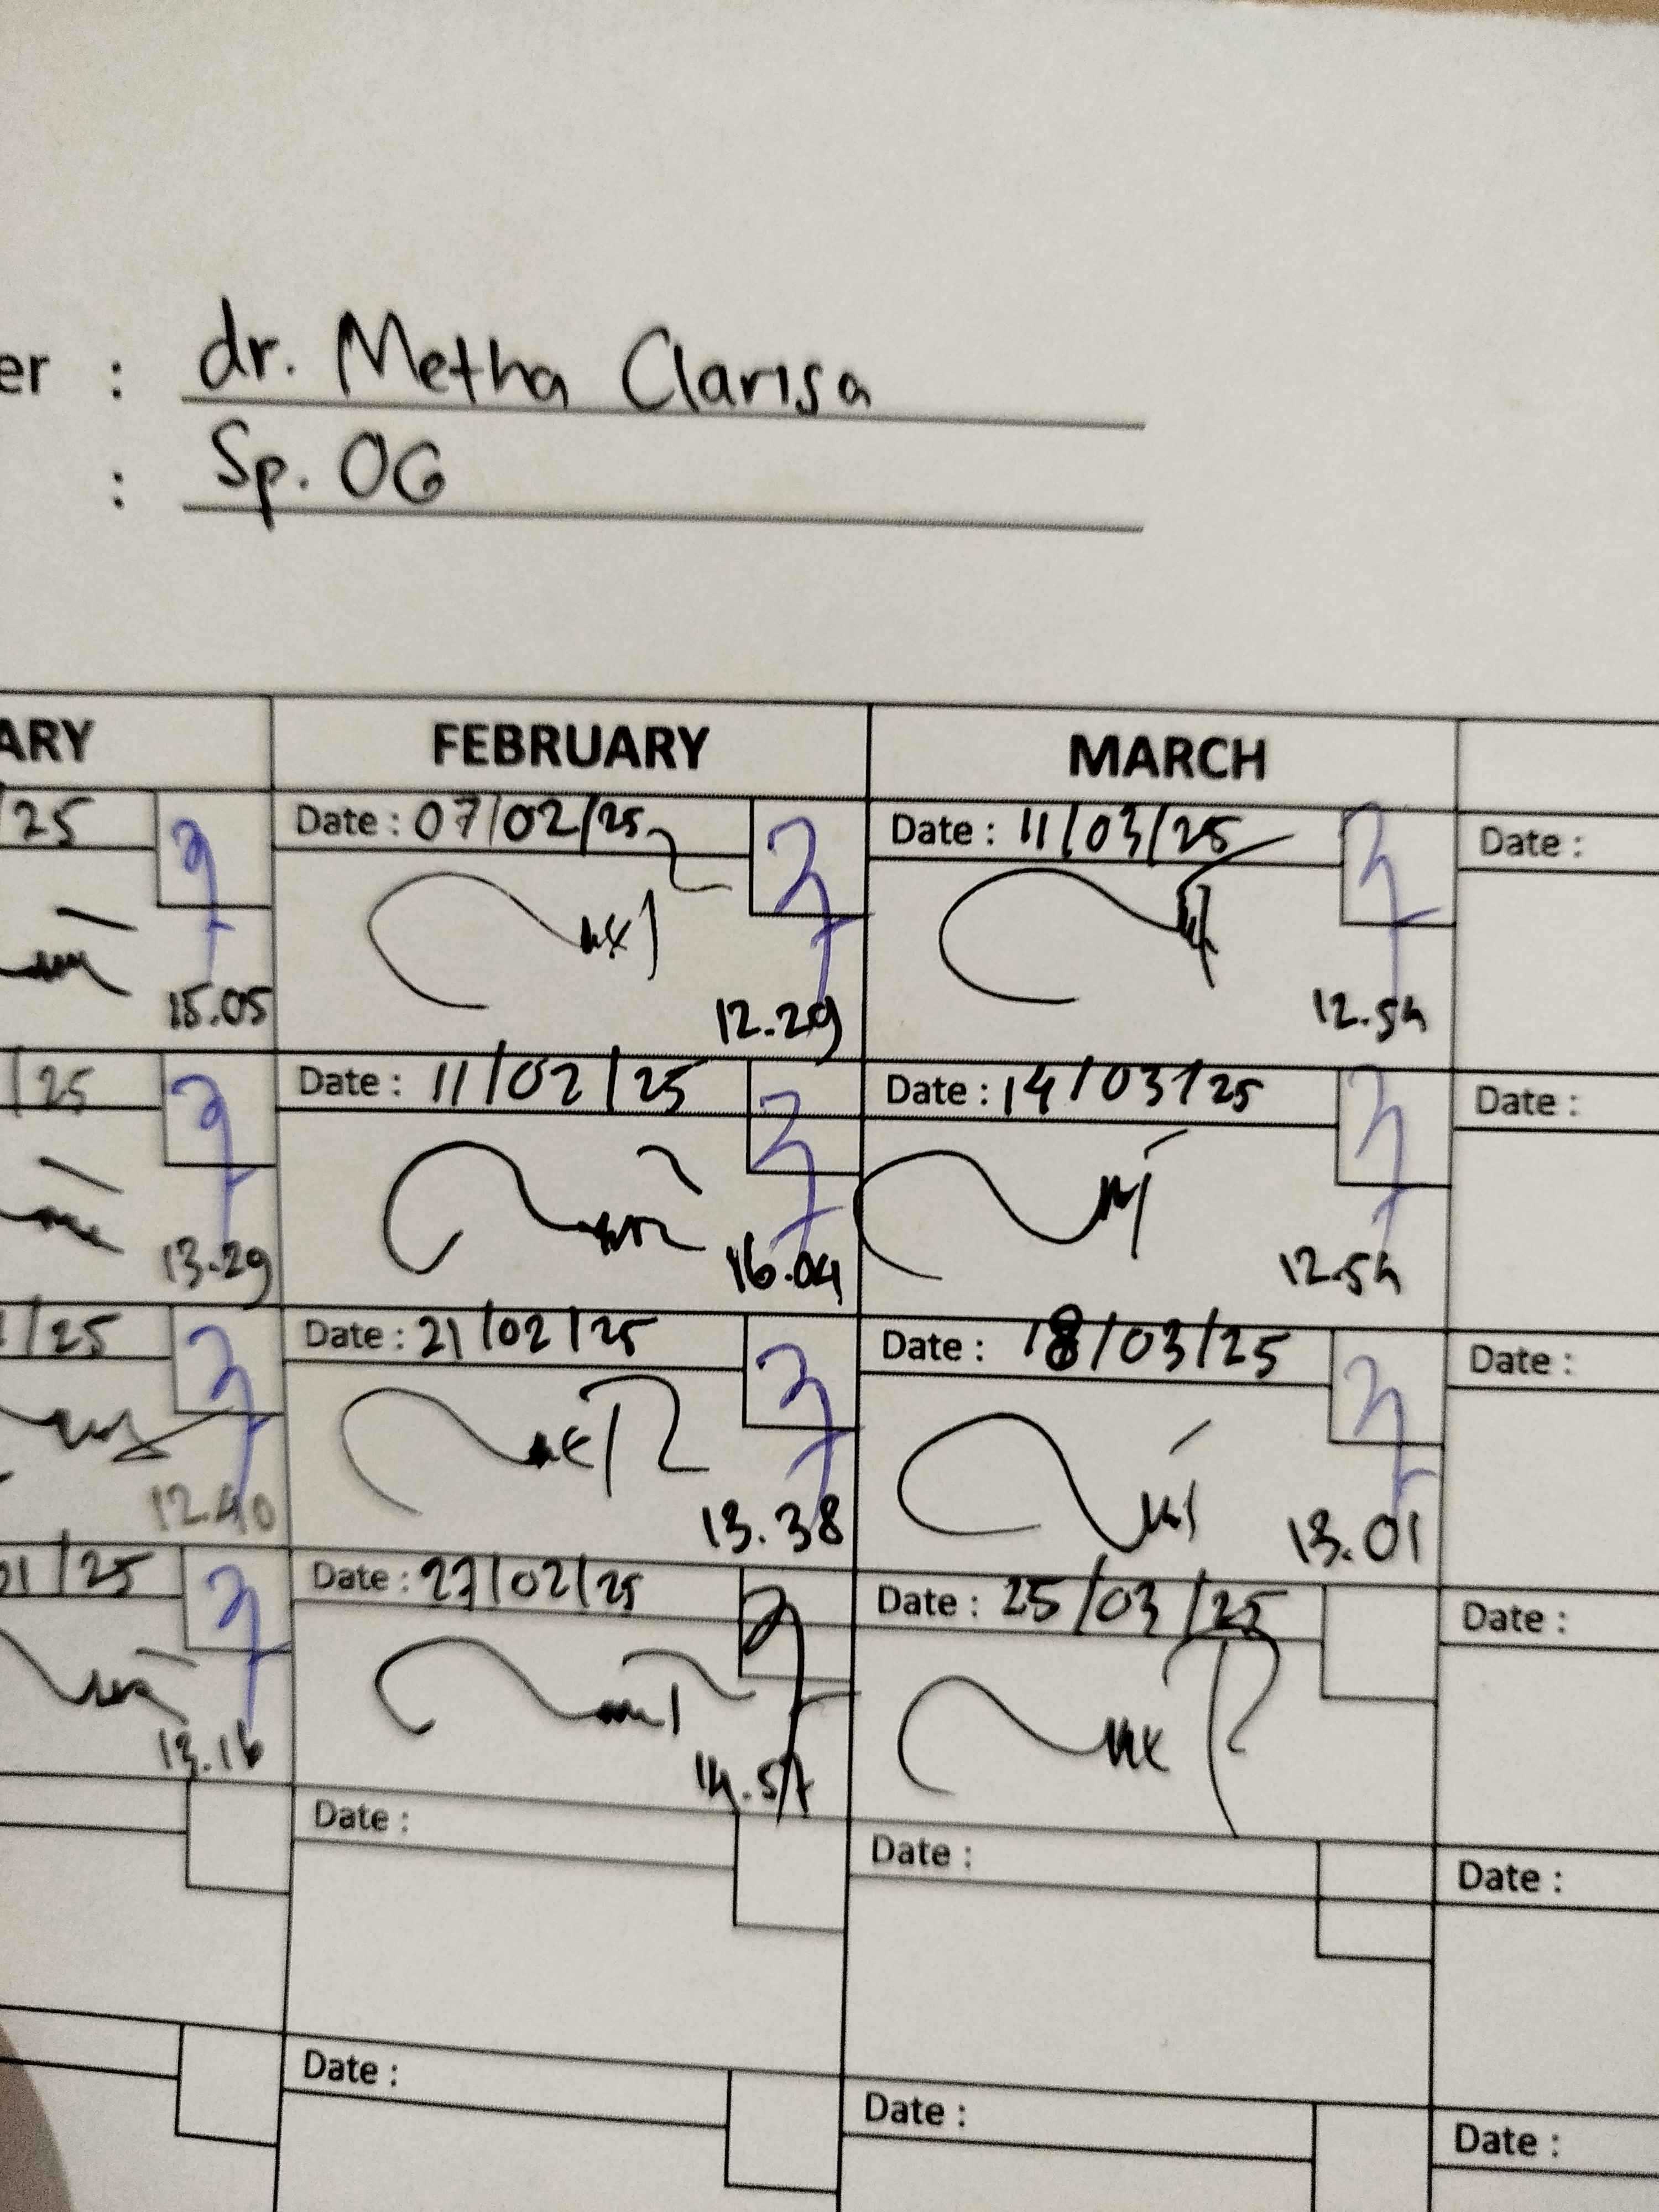 er : dr. Metha Clarisa
: Sp. OG
ARY FEBRUARY MARCH
/25 Date : 07/02/25 Date : 11/03/25 Date :
15.05 12.29 12.54
/25 Date : 11/02/25 Date : 14/03/25 Date :
13.29 16.04 12.54
/25 Date : 21/02/25 Date : 18/03/25 Date :
12.40 13.38 13.01
01/25 Date : 27/02/25 Date : 25/03/25 Date :
13.16 14.57
Date : Date : Date :
Date : Date : Date :